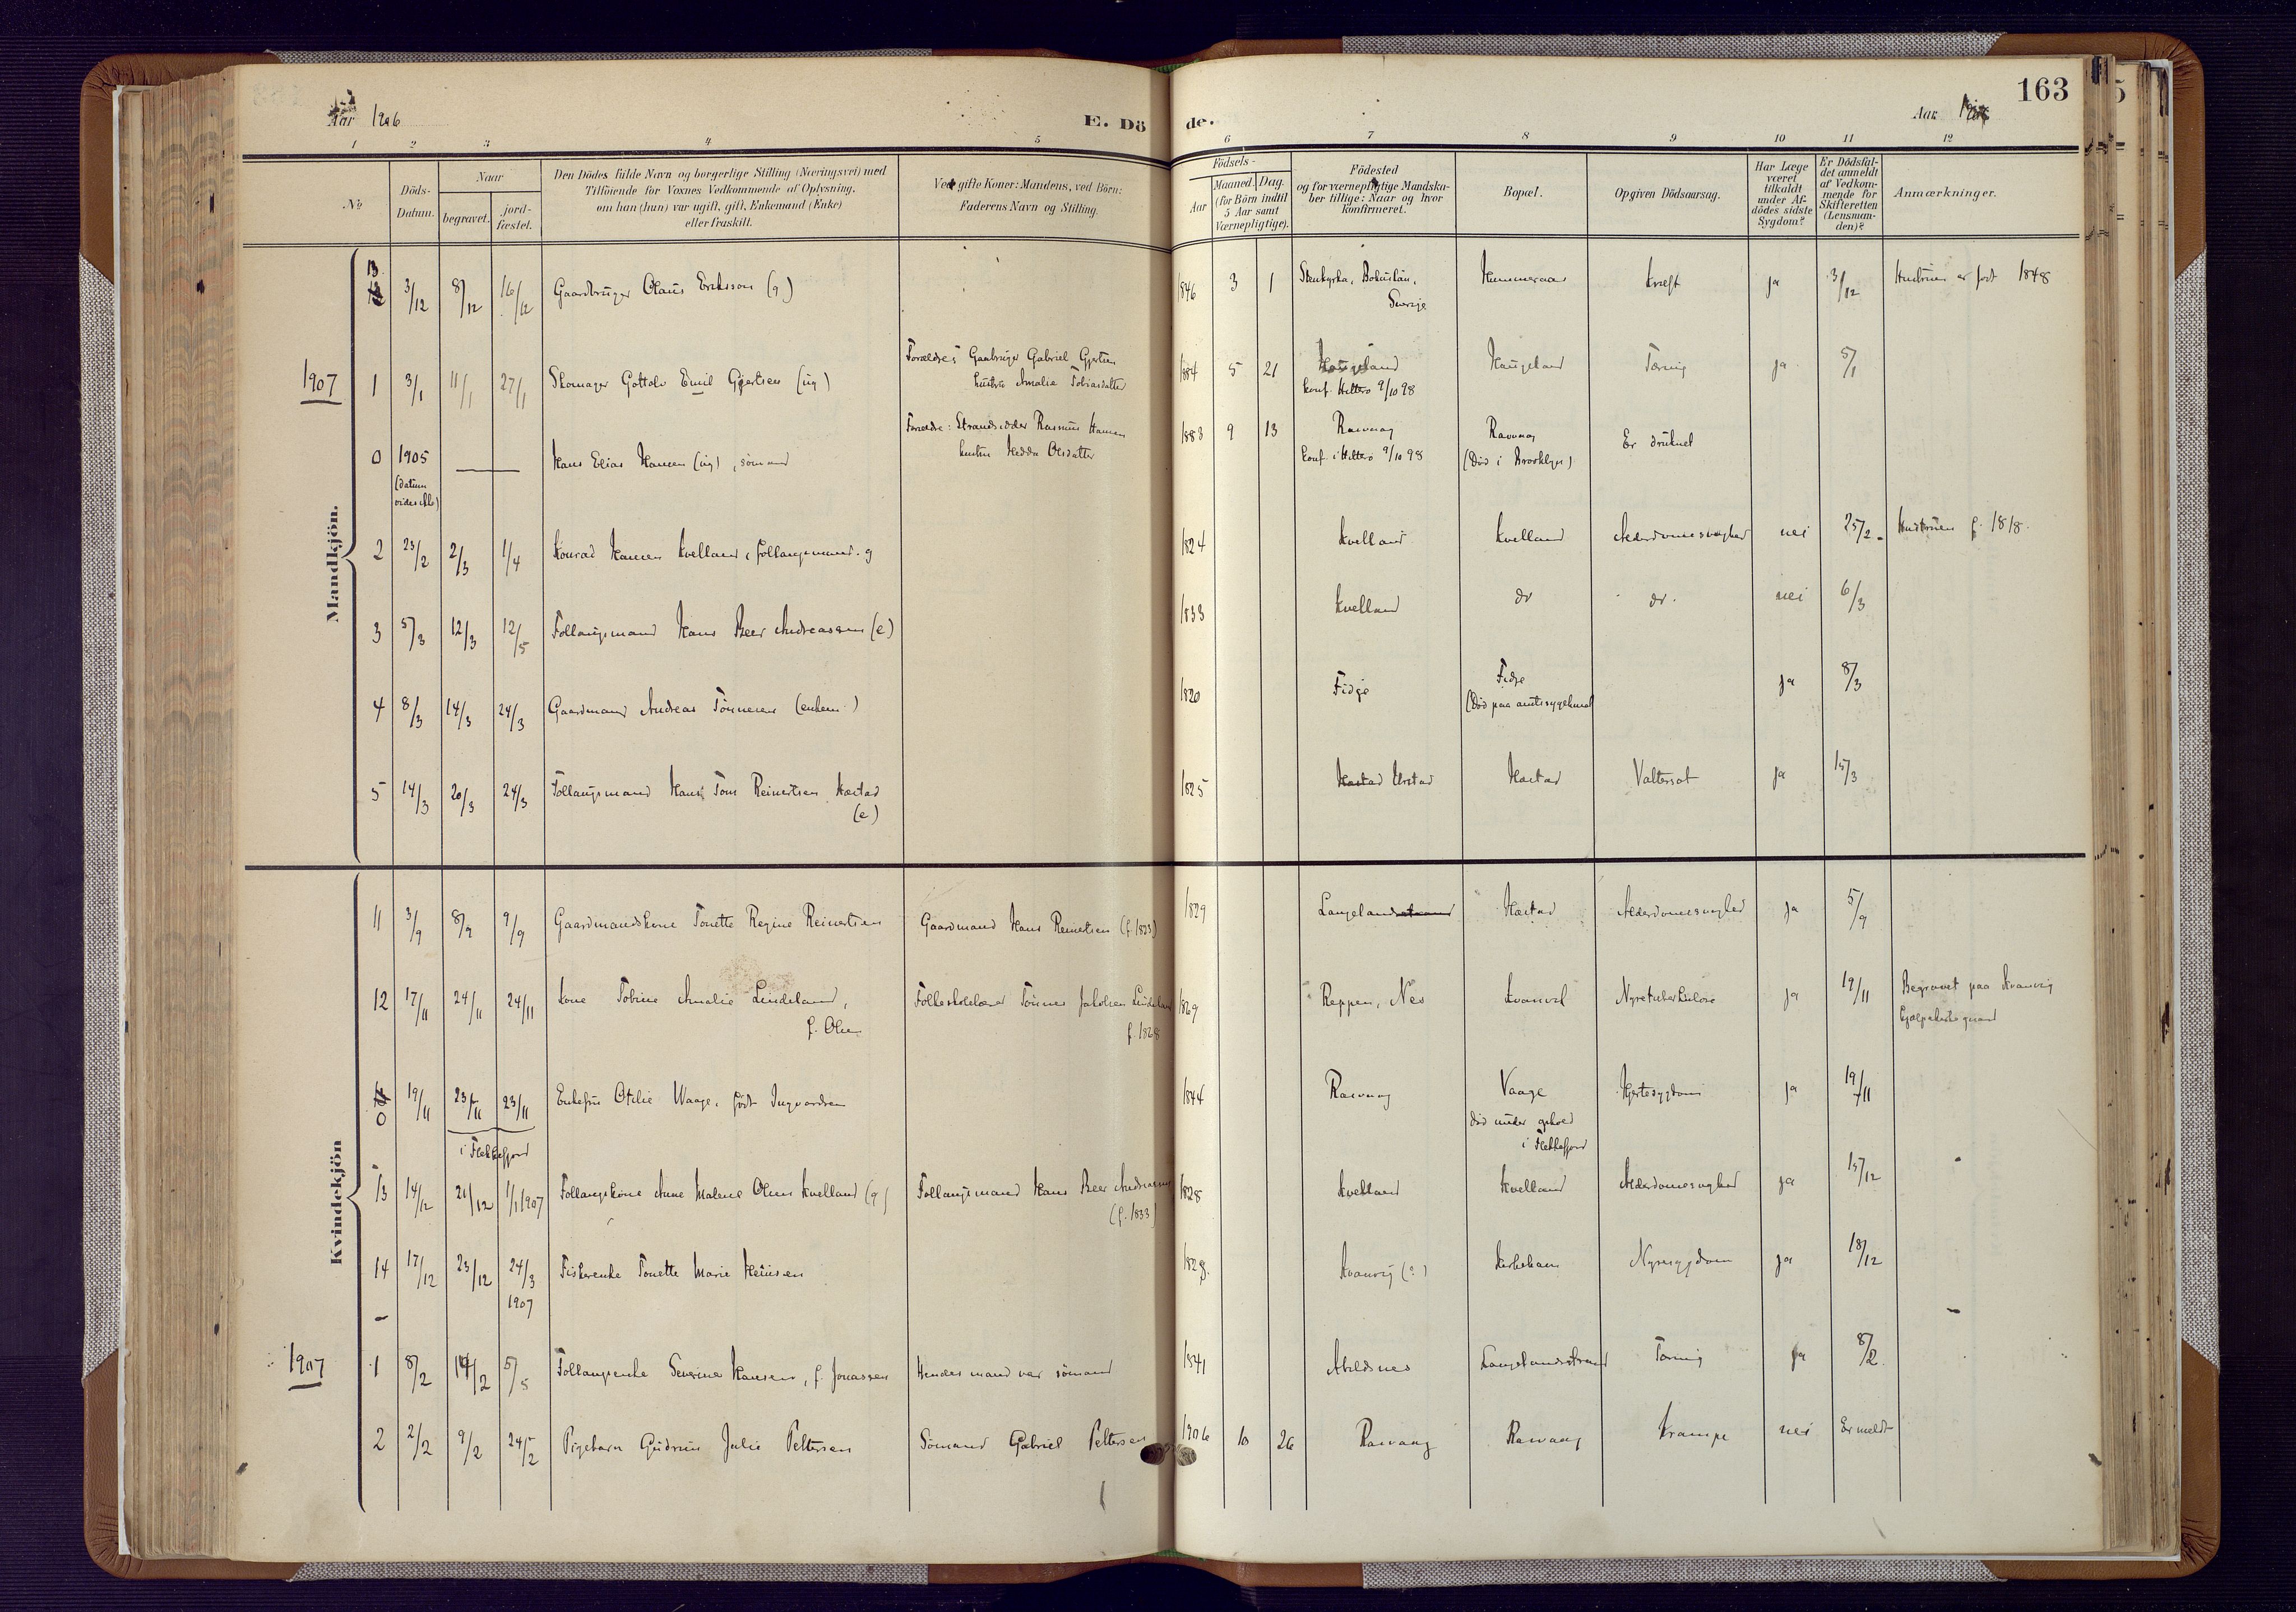 163
Aar 1906
E. Döde.
Aar
1 2 3 4 5 6 7 8 9 10 11 12
№
Döds-Datum.
Naar
begravet.
jord-fæstet.
Den Dödes fulde Navn og borgerlige Stilling (Næringsvei) med
Tilföiende for Voxnes Vedkommende af Oplysning,
om han (hun) var ugift, gift, Enkemand (Enke)
eller fraskilt.
Ved gifte Koner: Mandens, ved Börn:
Faderens Navn og Stilling.
Födsels-
Aar
Maaned. Dag.
(for Börn indtil
5 Aar samt
Værnepligtige).
Födested
og for værnepligtige Mandska-
ber tillige: Naar og hvor
konfirmeret.
Bopæl.
Opgiven Dödsaarsag.
Har Læge
været
tilkaldt
under Af-
dödes sidste
Sygdom?
Er Dödsfal-
det anmeldt
af Vedkom-
mende for
Skifteretten
(Lensman-
den)?
Anmærkninger.
Mandkjön.
13 3/12 8/12 16/12 Gaardbruger Olaus Eriksson (g) 1846 3 1 Stenkyrka, Bohuslän, Hummeraas Kræft ja 3/12 Hustruen er født 1848
Sverige
1907
1 3/1 11/1 27/1 Skomager Gottolv Emil Gjertsen (ug) Forældre: Gaardbruger Gabriel Gjertsen 1884 5 21 Haugeland Haugeland Tæring ja 5/1
hustru Amalie Tobiasdatter konf. Hitterø 9/10 98
0 1905 Hans Elias Hansen (ug), sømand Forældre: Strandsidder Rasmus Hansen 1883 9 13 Rasvaag Rasvaag Er druknet
(datum vides ikke) hustru Hedda Olsdatter konf. i Hitterø 9/10 98 (Død i Brooklyn)
2 23/2 2/3 1/4 Konrad Hansen Kvelland, follaugsmand. g 1824 Kvelland Kvelland Alderdomssvaghed nei 25/2 Hustruen f. 1818.
3 5/3 12/3 12/5 Follaugsmand Hans Peer Andreassen (e) 1833 Kvelland do do. nei 6/3
4 8/3 14/3 24/3 Gaardmand Andreas Tønnesen (enkem.) 1820 Fidje Fidje ja 8/3
(Død paa amtssygehuset
5 14/3 20/3 24/3 Follaugsmand Hans Tom Reinertsen Hæstad 1825 Hæstad Urstad Hæstad Vattersot ja 15/3
(e)
Kvindekjön
11 3/9 8/9 9/9 Gaardmandskone Tonette Regine Reinertsen Gaardmand Hans Reinertsen (f. 1823) 1829 Langelandstrand Hæstad Alderdomssvaghed ja 5/9
12 17/11 24/11 24/11 Kone Tobine Amalie Lindeland, Folkeskolelærer Tønnes Jakobsen Lindeland 1869 Reppen, Nes Kvanvik Nyretuberkulose ja 19/11 Begravet paa Kvanvig
f. Olsen f. 1868 hjælpekirkegaard
0 19/11 23/11 23/11 Enkefru Otilie Waage, født Ingvardsen 1844 Rasvaag Vaage Hjertesygdom ja 19/11
i Flekkefjord død under ophold
i Flekkefjord
13 14/12 21/12 1/1 1907 Follaugskone Anne Malene Olsen Kvelland (g) Follaugsmand Hans Peer Andreassen 1828 Kvelland Kvelland Alderdomssvaghed ja 15/12
(f. 1833)
14 17/12 23/12 24/3 Fiskerenke Tonette Marie Heinsen 1828. Kvanvig (?) Kirkehavn Nyresygdom ja 18/12
1907
1907
1 8/2 14/2 5/5 Follaugsenke Severine Hansen, f. Jonassen Hendes mand var sømand 1841 Abelsnes Langelandsstrand Tæring ja 8/2
2 2/2 9/2 24/2 Pigebarn Gudrun Julie Pettersen Sømand Gabriel Pettersen 1906 10 26 Rasvaag Rasvaag Krampe nei Er meldt